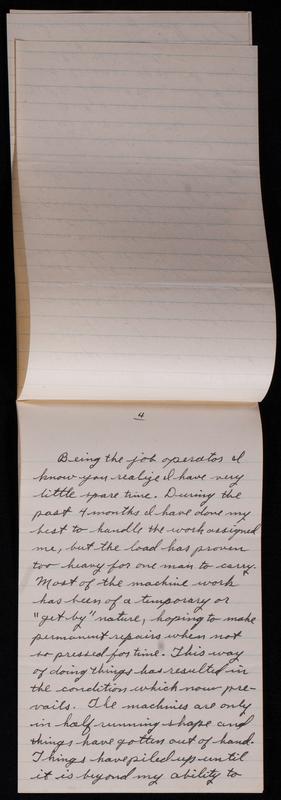 4
Being the job operator I
know you realize I have very
little spare time. During the
past 4 months I have done my
best to handle the work assigned
me, but the load has proven
too heavy for one man to carry.
Most of the machine work
has been of a temporary or
"get by" nature, hoping to make
permanent repairs when not
so pressed for time. This way
of doing things has resulted in
the condition which now pre-
vails. The machines are only
in half running shape and
things have gotten out of hand.
Things have piled up until
it is beyond my ability to